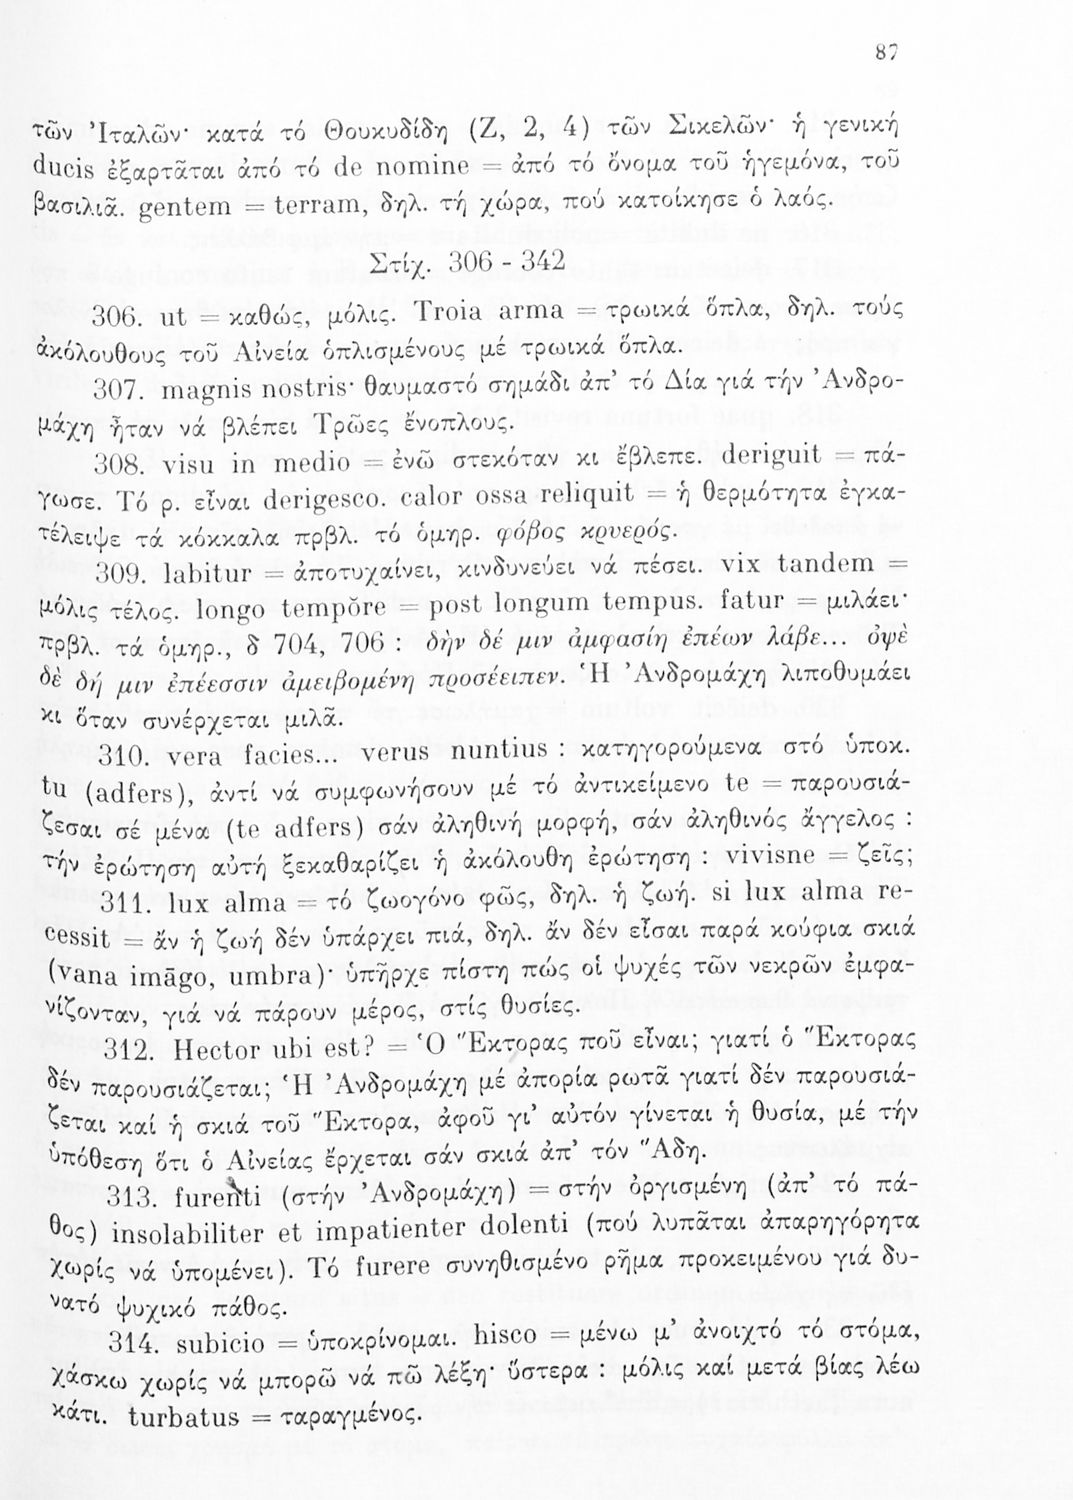 87
τῶν Ἰταλῶν· κατά τό Θουκυδίδη (Ζ, 2, 4) τῶν Σικελῶν· ἡ γενική
ducis ἐξαρτᾶται ἀπό τό de nomine = ἀπό τό ὄνομα τοῦ ἡγεμόνα, τοῦ
βασιλιᾶ. gentem = terram, δηλ. τή χώρα, πού κατοίκησε ὁ λαός.
Στίχ. 306 - 342
306. ut = καθώς, μόλις. Troia arma = τρωικά ὅπλα, δηλ. τούς
ἀκόλουθους τοῦ Αἰνεία ὁπλισμένους μέ τρωικά ὅπλα.
307. magnis nostris· θαυμαστό σημάδι ἀπ’ τό Δία γιά τήν Ἀνδρο-
μάχη ἦταν νά βλέπει Τρῶες ἔνοπλους.
308. visu in medio = ἐνῶ στεκόταν κι ἔβλεπε. deriguit = πά-
γωσε. Τό ρ. εἶναι derigesco. calor ossa reliquit = ἡ θερμότητα ἐγκα-
τέλειψε τά κόκκαλα πρβλ. τό ὁμηρ. φόβος κρυερός.
309. labitur = ἀποτυχαίνει, κινδυνεύει νά πέσει. vix tandem =
μόλις τέλος. longo tempŏre = post longum tempus. fatur = μιλάει·
πρβλ. τά ὁμηρ., δ 704, 706 : δὴν δέ μιν ἀμφασίη ἐπέων λάβε... ὀψὲ
δὲ δή μιν ἐπέεσσιν ἀμειβομένη προσέειπεν. Ἡ Ἀνδρομάχη λιποθυμάει
κι ὅταν συνέρχεται μιλᾶ.
310. vera facies... verus nuntius : κατηγορούμενα στό ὑποκ.
tu (adfers), ἀντί νά συμφωνήσουν μέ τό ἀντικείμενο te = παρουσιά-
ζεσαι σέ μένα (te adfers) σάν ἀληθινή μορφή, σάν ἀληθινός ἄγγελος :
τήν ἐρώτηση αὐτή ξεκαθαρίζει ἡ ἀκόλουθη ἐρώτηση : vivisne = ζεῖς;
311. lux alma = τό ζωογόνο φῶς, δηλ. ἡ ζωή. si lux alma re-
cessit = ἄν ἡ ζωή δέν ὑπάρχει πιά, δηλ. ἄν δέν εἶσαι παρά κούφια σκιά
(vana imāgo, umbra)· ὑπῆρχε πίστη πώς οἱ ψυχές τῶν νεκρῶν ἐμφα-
νίζονταν, γιά νά πάρουν μέρος, στίς θυσίες.
312. Hector ubi est? = Ὁ Ἕκτορας ποῦ εἶναι; γιατί ὁ Ἕκτορας
δέν παρουσιάζεται; Ἡ Ἀνδρομάχη μέ ἀπορία ρωτᾶ γιατί δέν παρουσιά-
ζεται καί ἡ σκιά τοῦ Ἕκτορα, ἀφοῦ γι’ αὐτόν γίνεται ἡ θυσία, μέ τήν
ὑπόθεση ὅτι ὁ Αἰνείας ἔρχεται σάν σκιά ἀπ’ τόν Ἅδη.
313. furenti (στήν Ἀνδρομάχη) = στήν ὀργισμένη (ἀπ’ τό πά-
θος) insolabiliter et impatienter dolenti (πού λυπᾶται ἀπαρηγόρητα
χωρίς νά ὑπομένει). Τό furere συνηθισμένο ρῆμα προκειμένου γιά δυ-
νατό ψυχικό πάθος.
314. subicio = ὑποκρίνομαι. hisco = μένω μ’ ἀνοιχτό τό στόμα,
χάσκω χωρίς νά μπορῶ νά πῶ λέξη· ὕστερα : μόλις καί μετά βίας λέω
κάτι. turbatus = ταραγμένος.